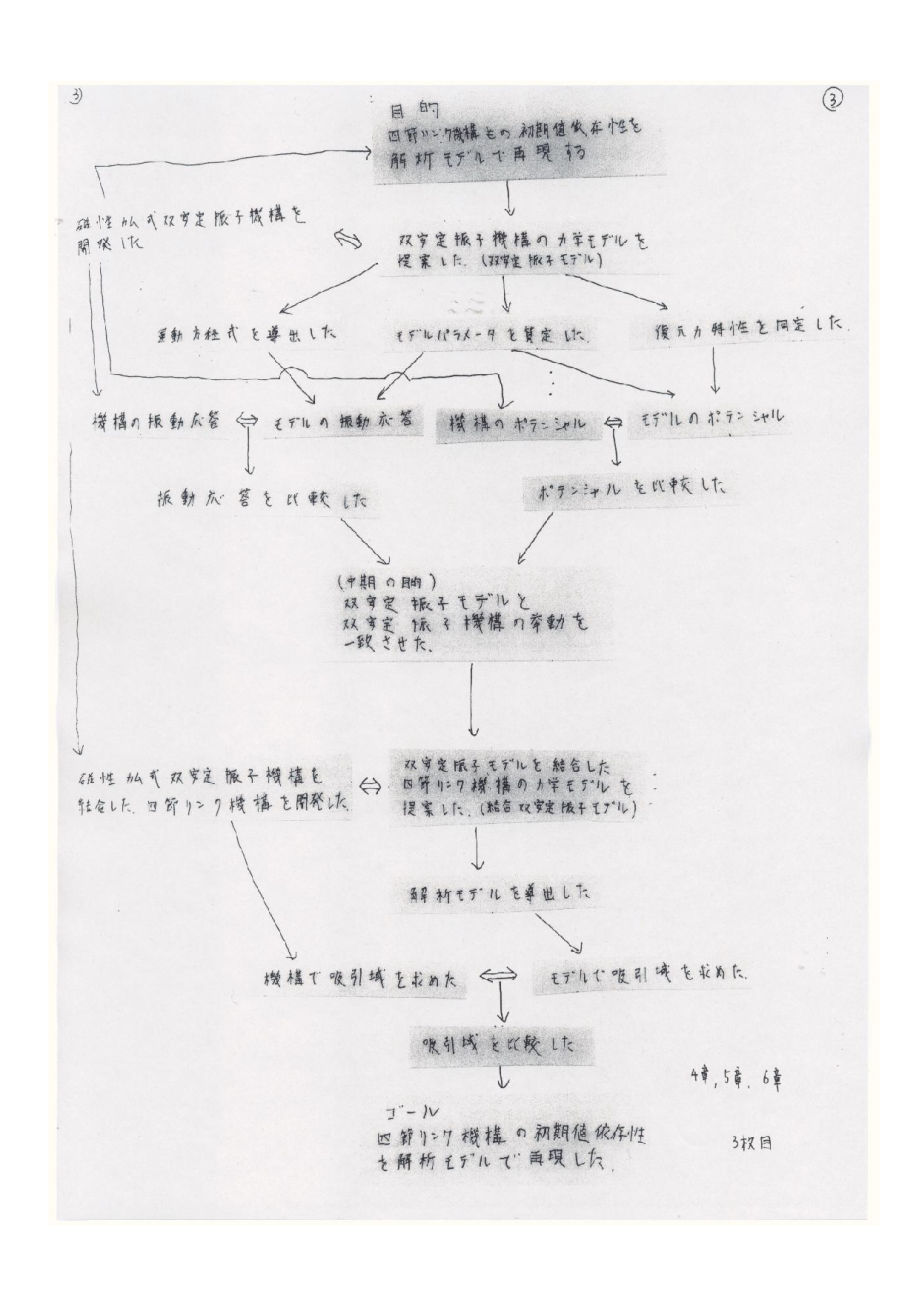 3)
③
目的
四節リンク機構もの初期値依存性を
解析モデルで再現する
磁性カム式双安定振子機構を
開発した
双安定振子機構の力学モデルを
提案した.(双安定振子モデル)
運動方程式を導出した
モデルパラメータを算定した.
復元力特性を同定した.
機構の振動応答
モデルの振動応答
機構のポテンシャル
モデルのポテンシャル
振動応答を比較した
ポテンシャルを比較した
(中期の目的)
双安定振子モデルと
双安定振子機構の挙動を
一致させた.
磁性カム式双安定振子機構を
結合した.四節リンク機構を開発した.
双安定振子モデルを結合した
四節リンク機構の力学モデルを
提案した.(結合双安定振子モデル)
解析モデルを導出した
機構で吸引域を求めた
モデルで吸引域を求めた.
吸引域を比較した
4章,5章.6章
ゴール
四節リンク機構の初期値依存性
を解析モデルで再現した.
3枚目